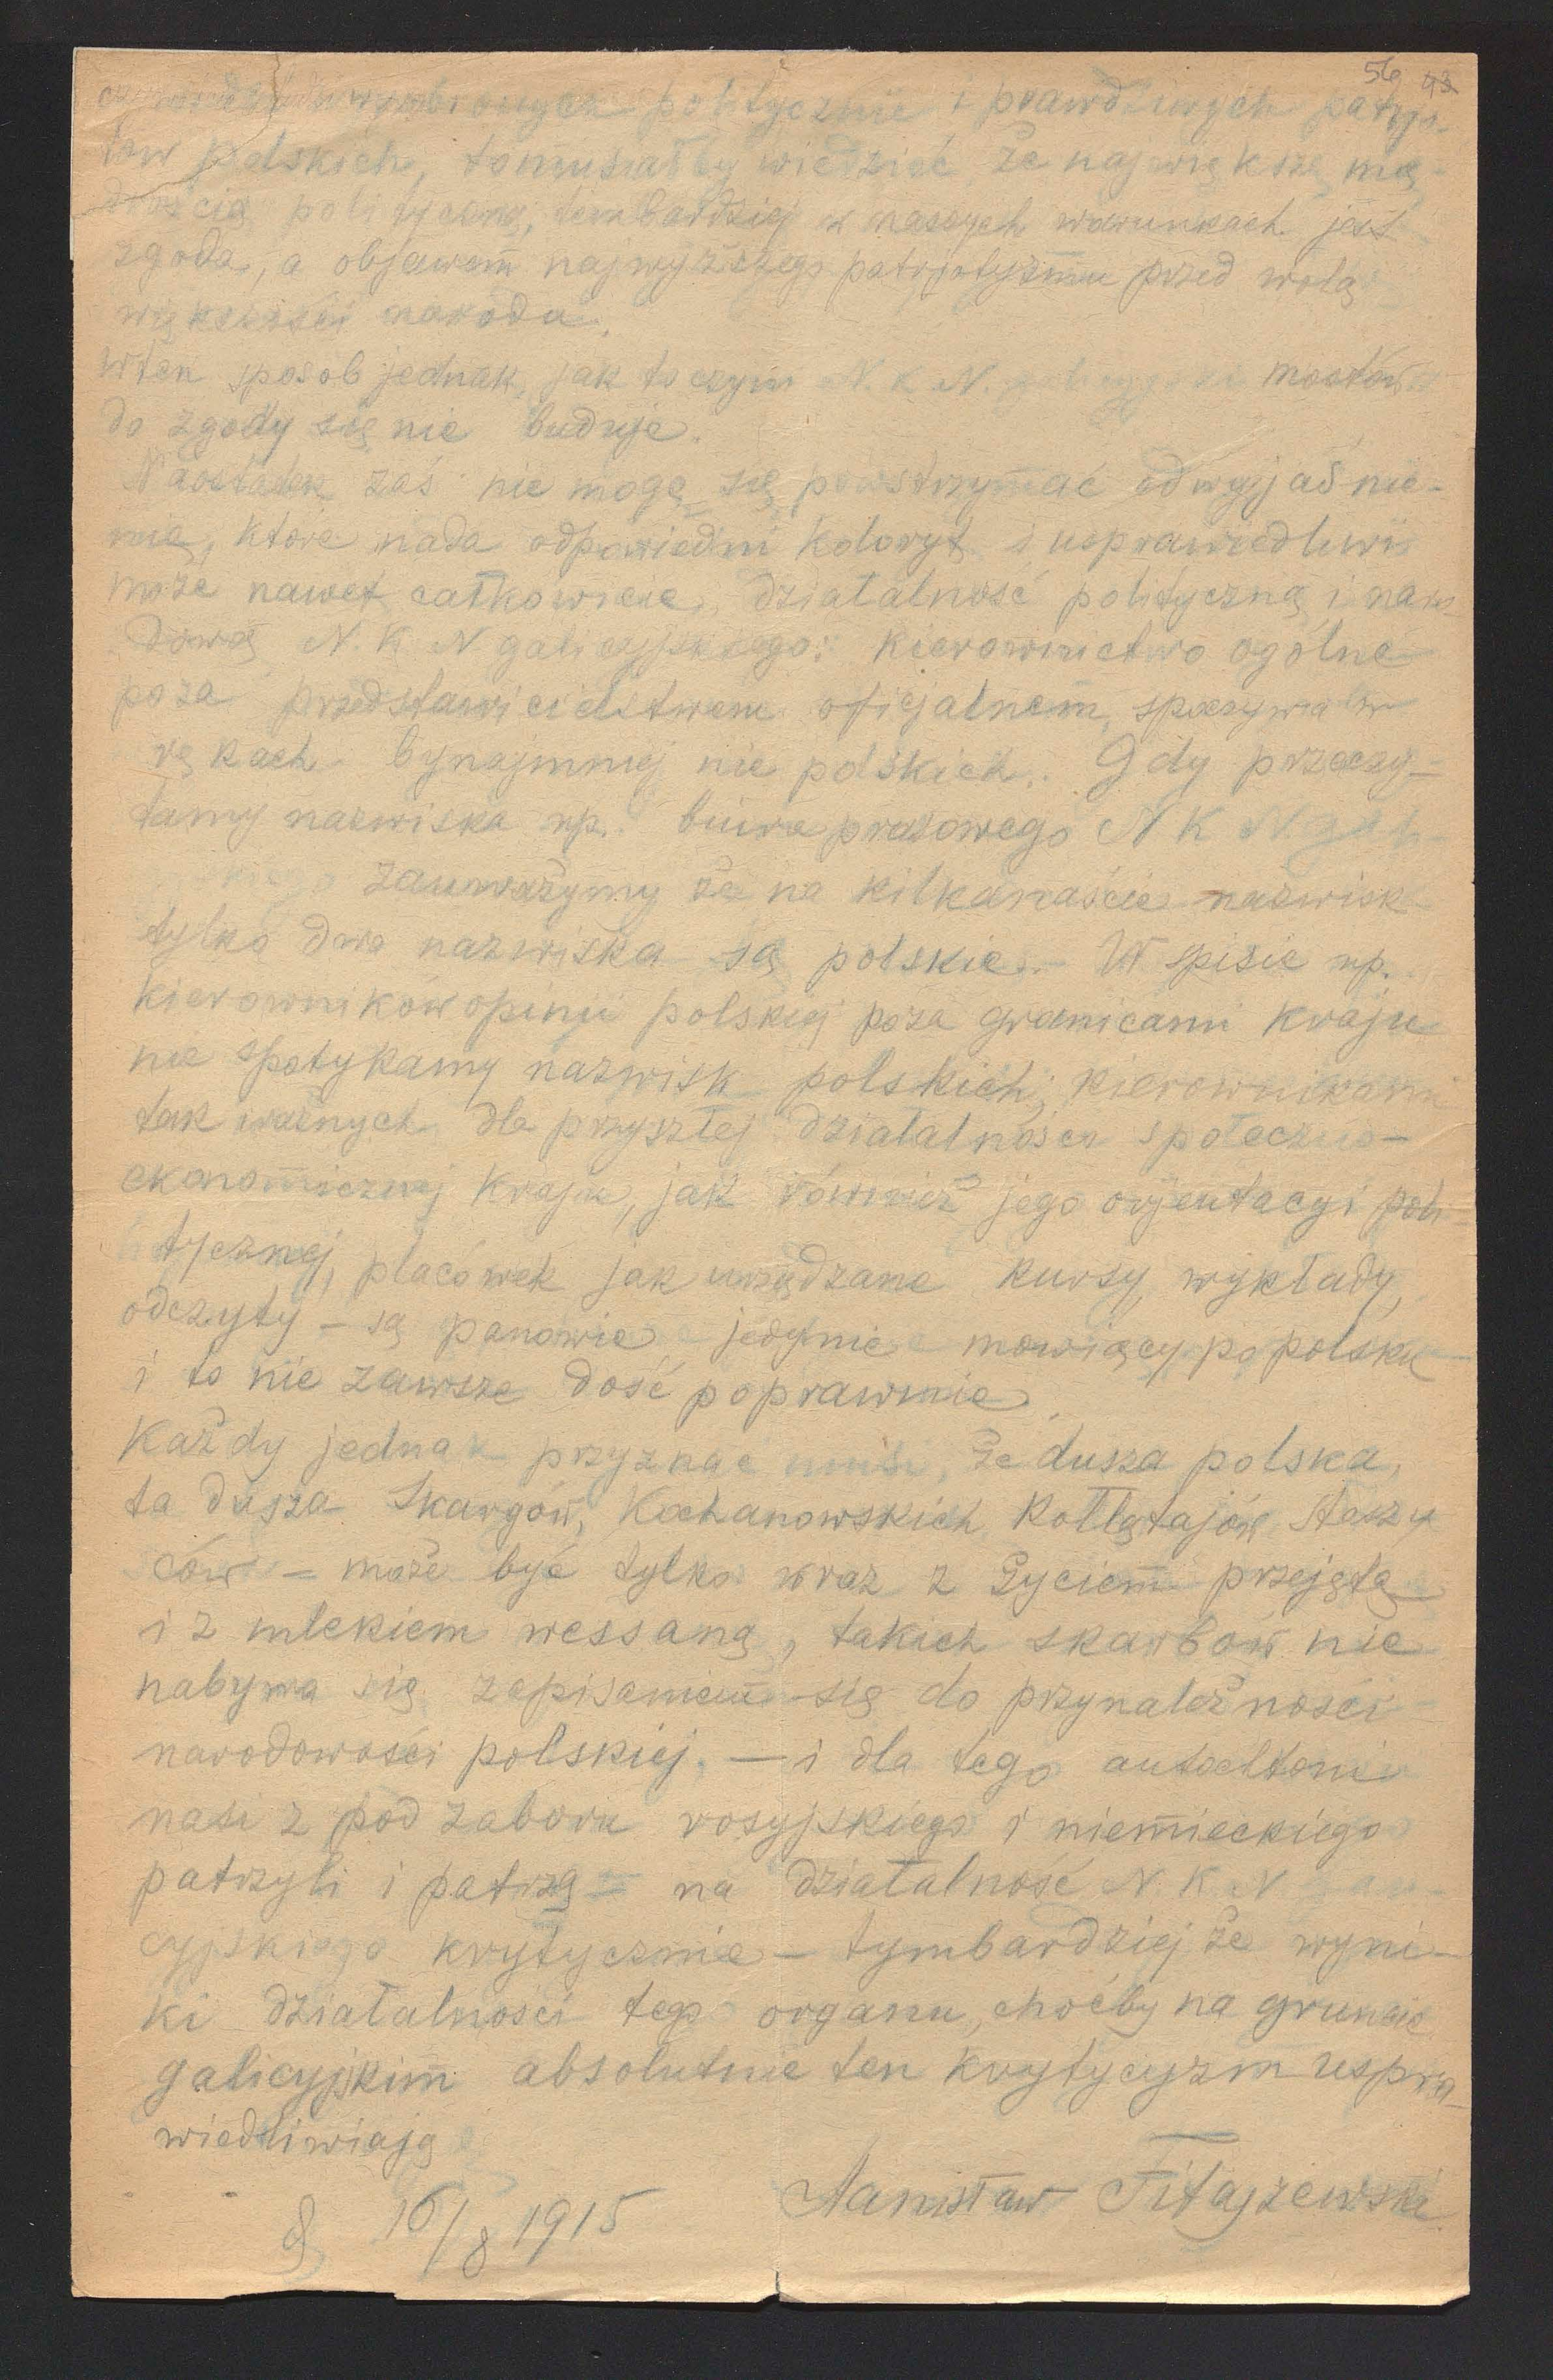 56 93
politycznie i prawdziwych patryjo-
tów polskich, to musiałby wiedzieć, że największą mą-
drością polityczną, tembardziej w naszych warunkach jest
zgoda, a objawem najwyższego patrjotyzmu przed wolą
większości narodu.
W ten sposób jednak, jak to czyni N. K. N. mostów
do zgody się nie buduje.
Naostatek zaś nie mogę się powstrzymać od wyjaśnie-
nia, które nada odpowiedni koloryt i usprawiedliwi
może nawet całkowicie, działalność polityczną i naro-
dową N. K. N galicyjskiego: kierownictwo ogólne
poza przedstawicielstwem oficjalnem, spoczywa w
rękach bynajmniej nie polskich. Gdy przeczy-
tamy nazwiska np. biura prasowego N K N gali-
zauważymy że na kilkanaście nazwisk
tylko dwa nazwiska są polskie. - W spisie np.
kierowników opinji polskiej poza granicami kraju
nie spotykamy nazwisk polskich; kierownikami
tak ważnych dla przyszłej działalności społeczno-
ekonomicznej kraju, jak również jego orjentacyi poli-
tycznej, placówek jak urządzane kursy, wykłady,
odczyty - są panowie jedynie mówiący po polsku
i to nie zawsze dość poprawnie.
Każdy jednak przyznać musi, że dusza polska,
ta dusza Skargów, Kochanowskich Kołłątajów Staszy
ców - może być tylko wraz z życiem przejętą
i z mlekiem wessaną, takich skarbów nie
nabywa się zapisaniem się do przynależności
narodowości polskiej. — i dla tego autochtoni
nasi z pod zaboru rosyjskiego i niemieckiego
patrzyli i patrzą - na działalność N. K. N gali-
cyjskiego krytycznie - tymbardziej że wyni-
ki działalności tego organu, choćby na gruncie
galicyjskim absolutnie ten krytycyzm uspra-
wiedliwiają
16/8 1915 Stanisław Fitajzewski